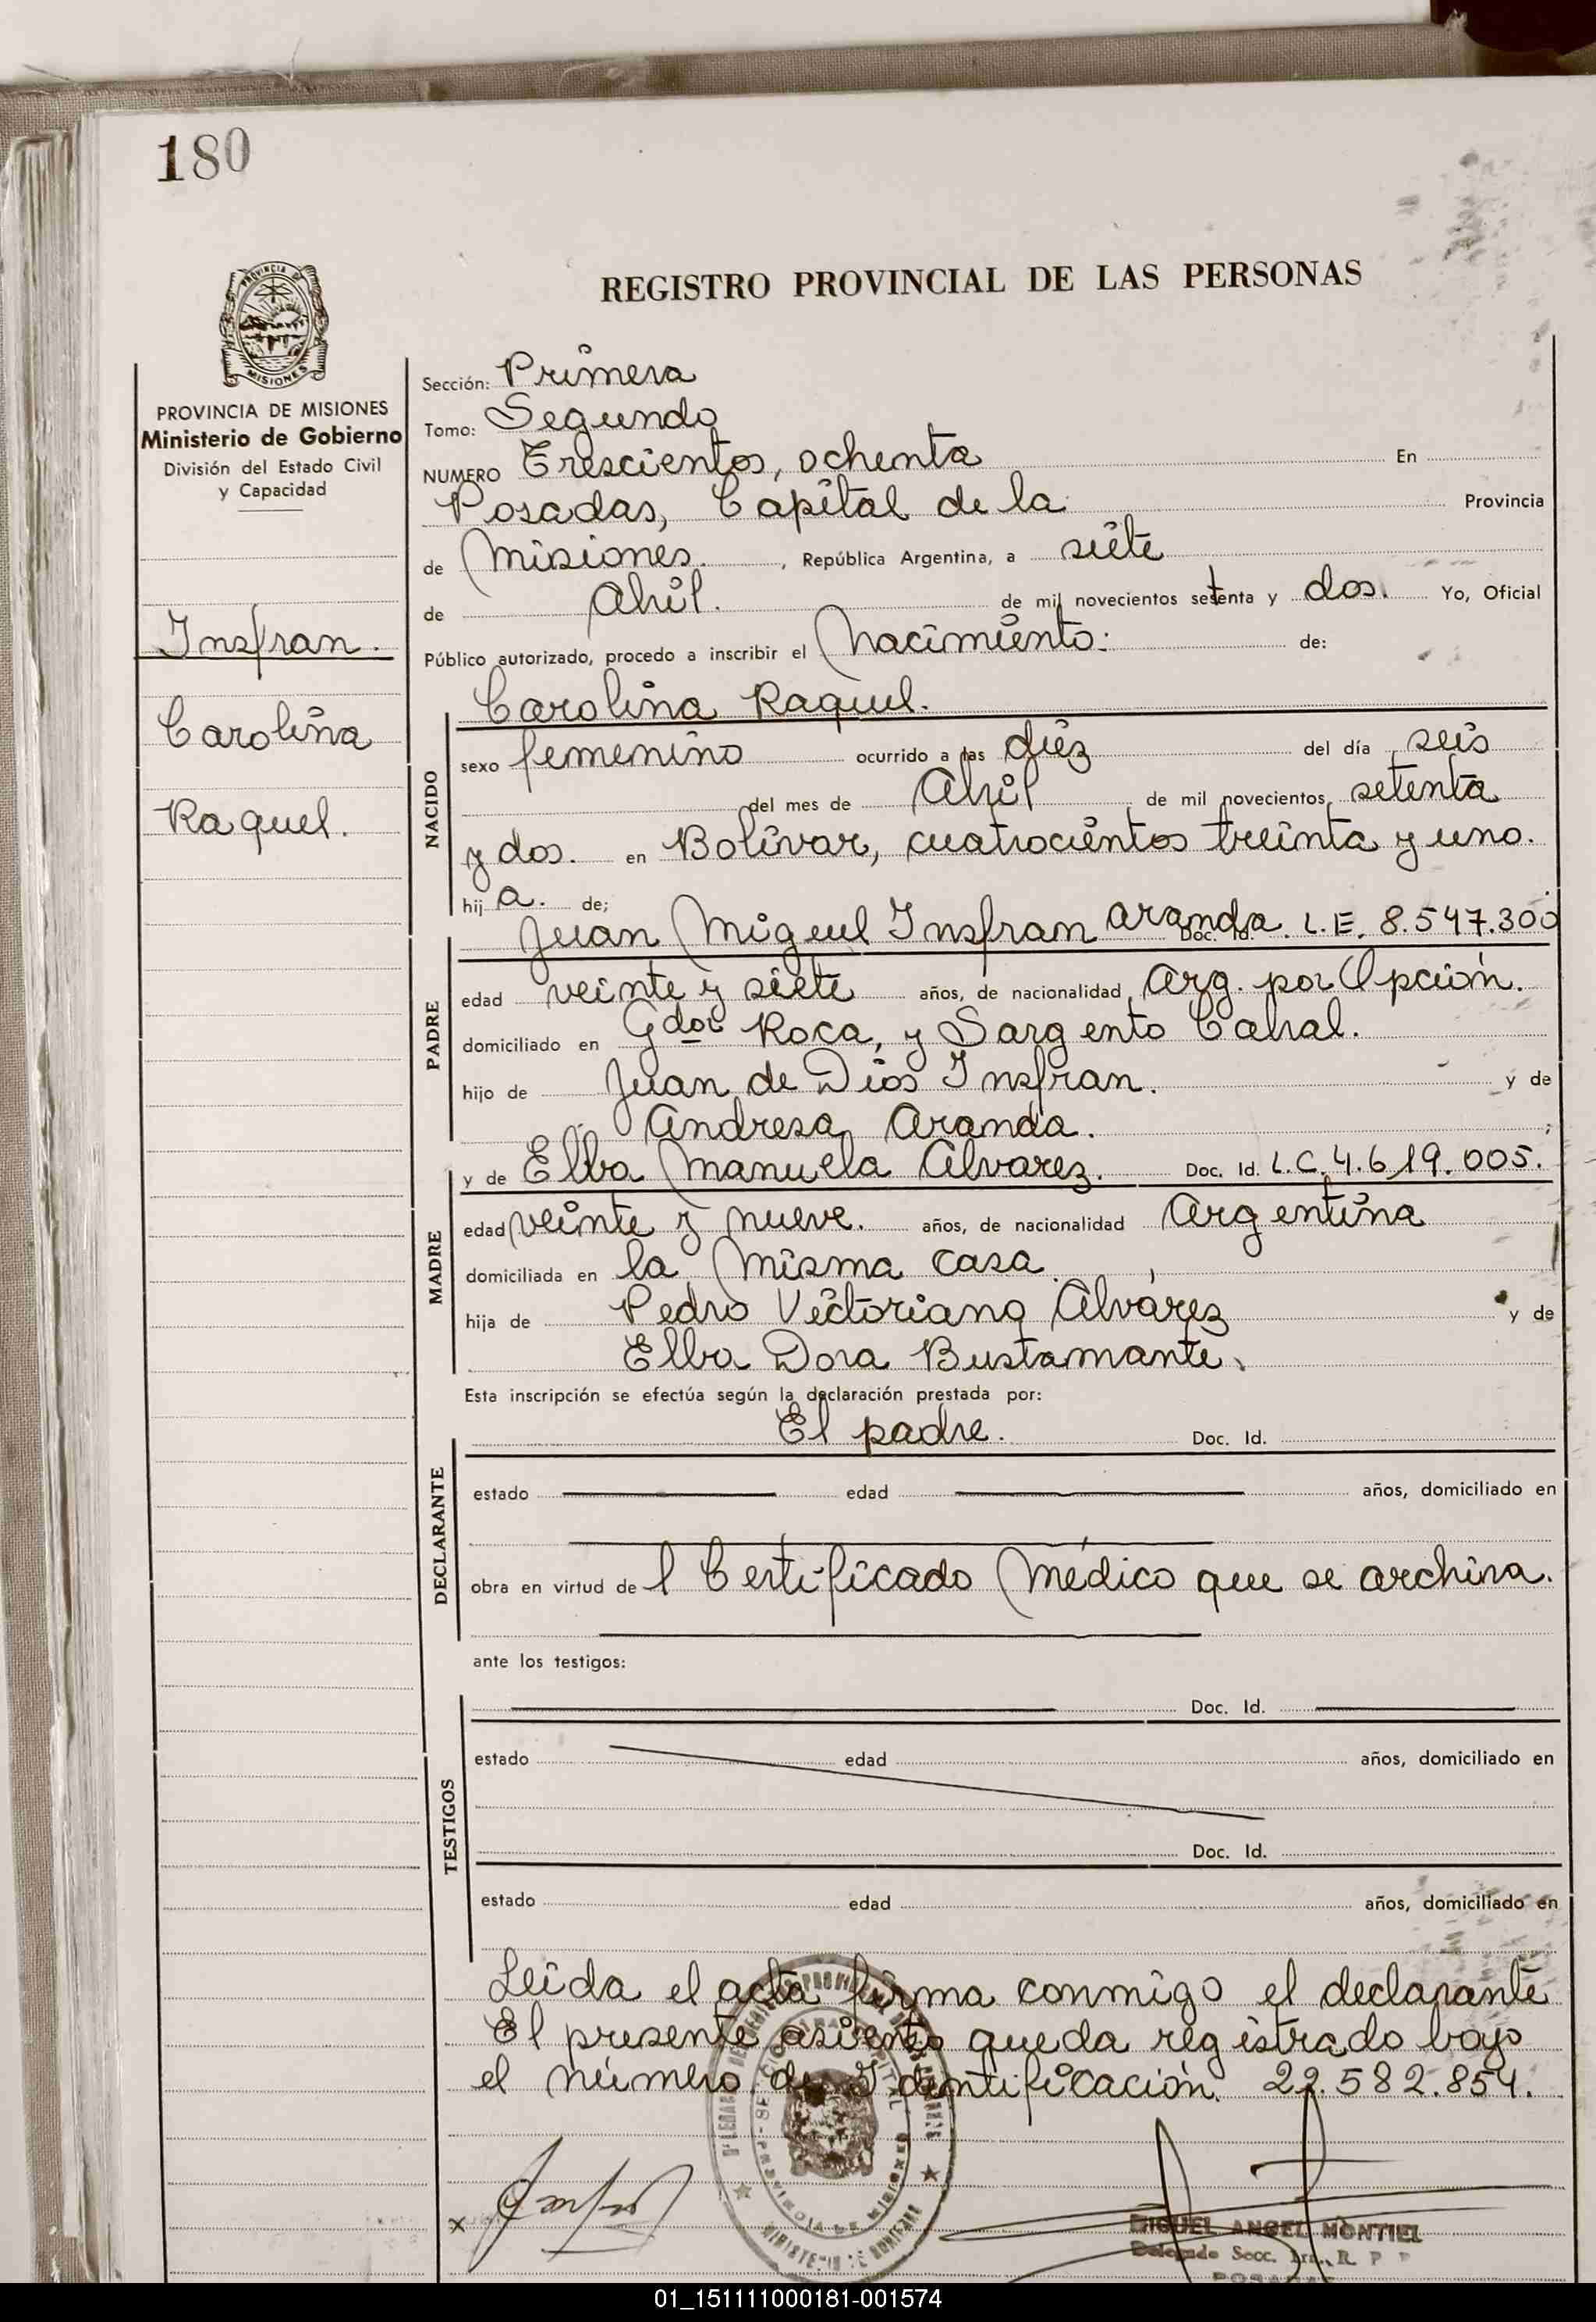 180
REGISTRO PROVINCIAL DE LAS PERSONAS
PROVINCIA DE MISIONES
Ministerio de Gobierno
División del Estado Civil
y Capacidad
Insfran.
Carolina
Raquel.
Sección: Primera
Tomo: Segundo
NUMERO Trescientos, ochenta En
Posadas, Capital de la Provincia
de Misiones. , República Argentina, a siete
de Abril. de mil novecientos setenta y dos. Yo, Oficial
Público autorizado, procedo a inscribir el Nacimiento: de:
Carolina Raquel.
NACIDO
sexo femenino ocurrido a las diez del día seis
del mes de Abril de mil novecientos setenta
y dos. en Bolívar, cuatrocientos treinta y uno.
hij a. de;
Juan Miguel Insfran Aranda. Doc. Id. L.E. 8.547.300
PADRE
edad veinte y siete años, de nacionalidad Arg. por Opción.
domiciliado en Gdor Roca, y Sargento Cabral.
hijo de Juan de Dios Insfran. y de
Andresa Aranda. ;
y de Elba Manuela Alvarez. Doc. Id. L.C. 4.619.005.
MADRE
edad veinte y nueve. años, de nacionalidad Argentina
domiciliada en la misma casa
hija de Pedro Victoriano Alvarez y de
Elba Dora Bustamante.
Esta inscripción se efectúa según la declaración prestada por:
El padre. Doc. Id.
DECLARANTE
estado edad años, domiciliado en
obra en virtud de l Certificado Médico que se archiva.
ante los testigos:
Doc. Id.
TESTIGOS
estado edad años, domiciliado en
Doc. Id.
estado edad años, domiciliado en
Leida el acta firma conmigo el declarante
El presente asiento queda registrado bajo
el número de Identificación 22.582.854.
MIGUEL ANGEL MONTIEL
Delegado Secc. 1ra. R. P. P.
POSADAS
01_151111000181-001574